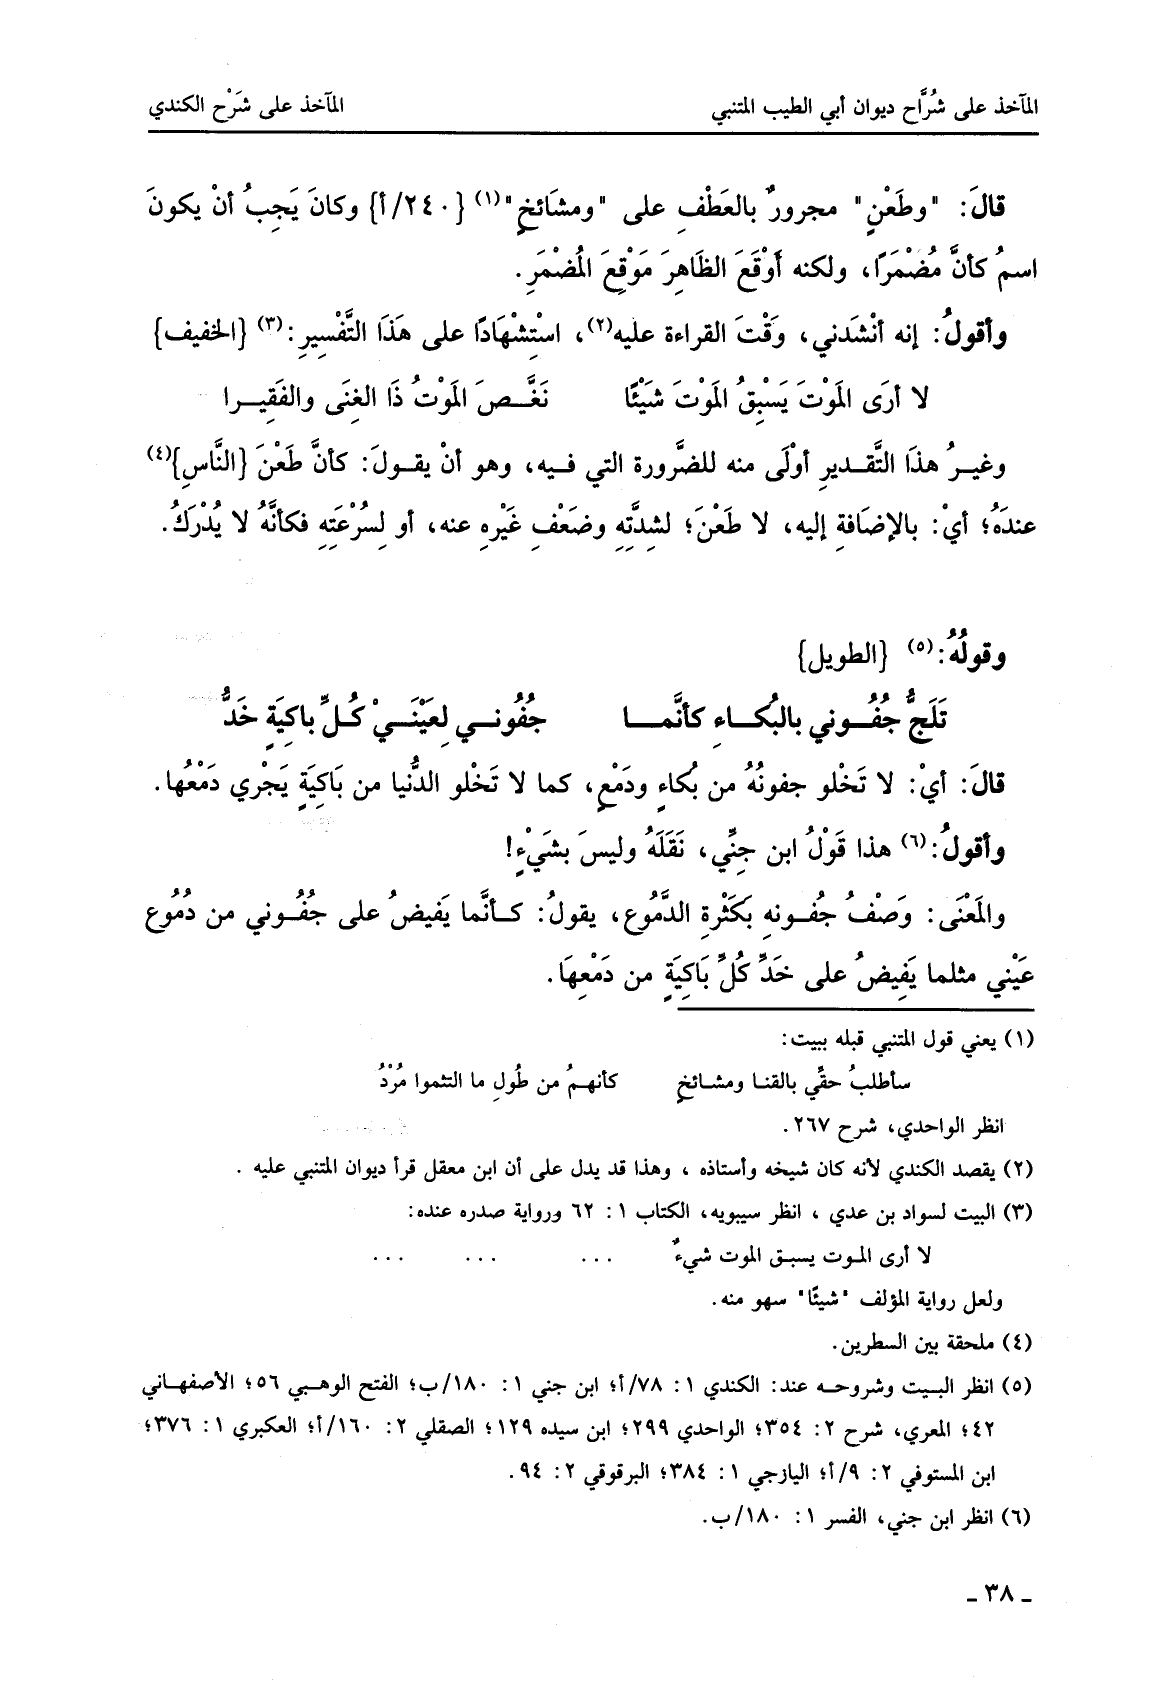 المآخذ على شُرَّاح ديوان أبي الطيب المتنبي المآخذ على شَرْح الكندي
قالَ: "وطَعْنٍ" مجرورٌ بالعَطْفِ على "ومشَائخٍ"(١) {٢٤٠/أ} وكانَ يَجِبُ أنْ يكونَ
اسمُ كأنَّ مُضْمَرًا، ولكنه أوْقَعَ الظَاهِرَ مَوْقِعَ المُضْمَرِ.
وأقولُ: إنه أنْشَدني، وَقْتَ القراءة عليه(٢)، اسْتِشْهَادًا على هَذَا التَّفْسِيرِ:(٣) {الخفيف}
لا أرَى المَوْتَ يَسْبِقُ المَوْتَ شَيْئًا نَغَّـصَ المَوْتُ ذَا الغِنَى والفَقِيـرا
وغيـرُ هذَا التَّقديرِ أوْلَى منه للضَّرورة التي فـيه، وهو أنْ يقـولَ: كأنَّ طَعْنَ {النَّاسِ}(٤)
عندَهُ؛ أيْ: بالإضَافةِ إليه، لا طَعْنَ؛ لشِدَّتِهِ وضَعْفِ غَيْرِهِ عنه، أو لِسُرْعَتِهِ فكأنَّهُ لا يُدْرَكُ.
وقولُهُ:(٥) {الطويل}
تَلَجُّ جُفُـوني بالبُكـاءِ كأنَّمـــا جُفُونـي لعَيْنَـيْ كُـلِّ باكيَةٍ خَدُّ
قالَ: أيْ: لا تَخْلو جفونُهُ من بُكاءٍ ودَمْعٍ، كما لا تَخْلو الدُّنيا من بَاكيَةٍ يَجْري دَمْعُها.
وأقولُ:(٦) هذا قَوْلُ ابن جنِّي، نَقَلَهُ وليسَ بشَيْءٍ!
والمَعْنَى: وَصْفُ جُفـونهِ بكَثْرةِ الدَّمُوع، يقولُ: كـأنَّما يَفيضُ على جُفُـوني من دمُوع
عَيْني مثلما يَفِيضُ على خَدِّ كُلِّ بَاكِيَةٍ من دَمْعِهَا.
(١) يعني قول المتنبي قبله ببيت:
سأطلبُ حقِّي بالقنـا ومشـائخٍ كأنهـمُ من طُولِ ما التثموا مُرْدُ
انظر الواحدي، شرح ٢٦٧.
(٢) يقصد الكندي لأنه كان شيخه وأستاذه ، وهذا قد يدل على أن ابن معقل قرأ ديوان المتنبي عليه .
(٣) البيت لسواد بن عدي ، انظر سيبويه، الكتاب ١: ٦٢ ورواية صدره عنده:
لا أرى المـوت يسبـق الموت شيءٌ ... ... ...
ولعل رواية المؤلف "شيئًا" سهو منه.
(٤) ملحقة بين السطرين.
(٥) انظر البـيت وشروحـه عند: الكندي ١: ٧٨/أ؛ ابن جني ١: ١٨٠/ب؛ الفتح الوهـبي ٥٦؛ الأصفهـاني
٤٢؛ المعري، شرح ٢: ٣٥٤؛ الواحدي ٢٩٩؛ ابن سيده ١٢٩؛ الصقلي ٢: ١٦٠/أ؛ العكبري ١: ٣٧٦؛
ابن المستوفي ٢: ٩/أ؛ اليازجي ١: ٣٨٤؛ البرقوقي ٢: ٩٤.
(٦) انظر ابن جني، الفسر ١: ١٨٠/ب.
ـ ٣٨ ـ